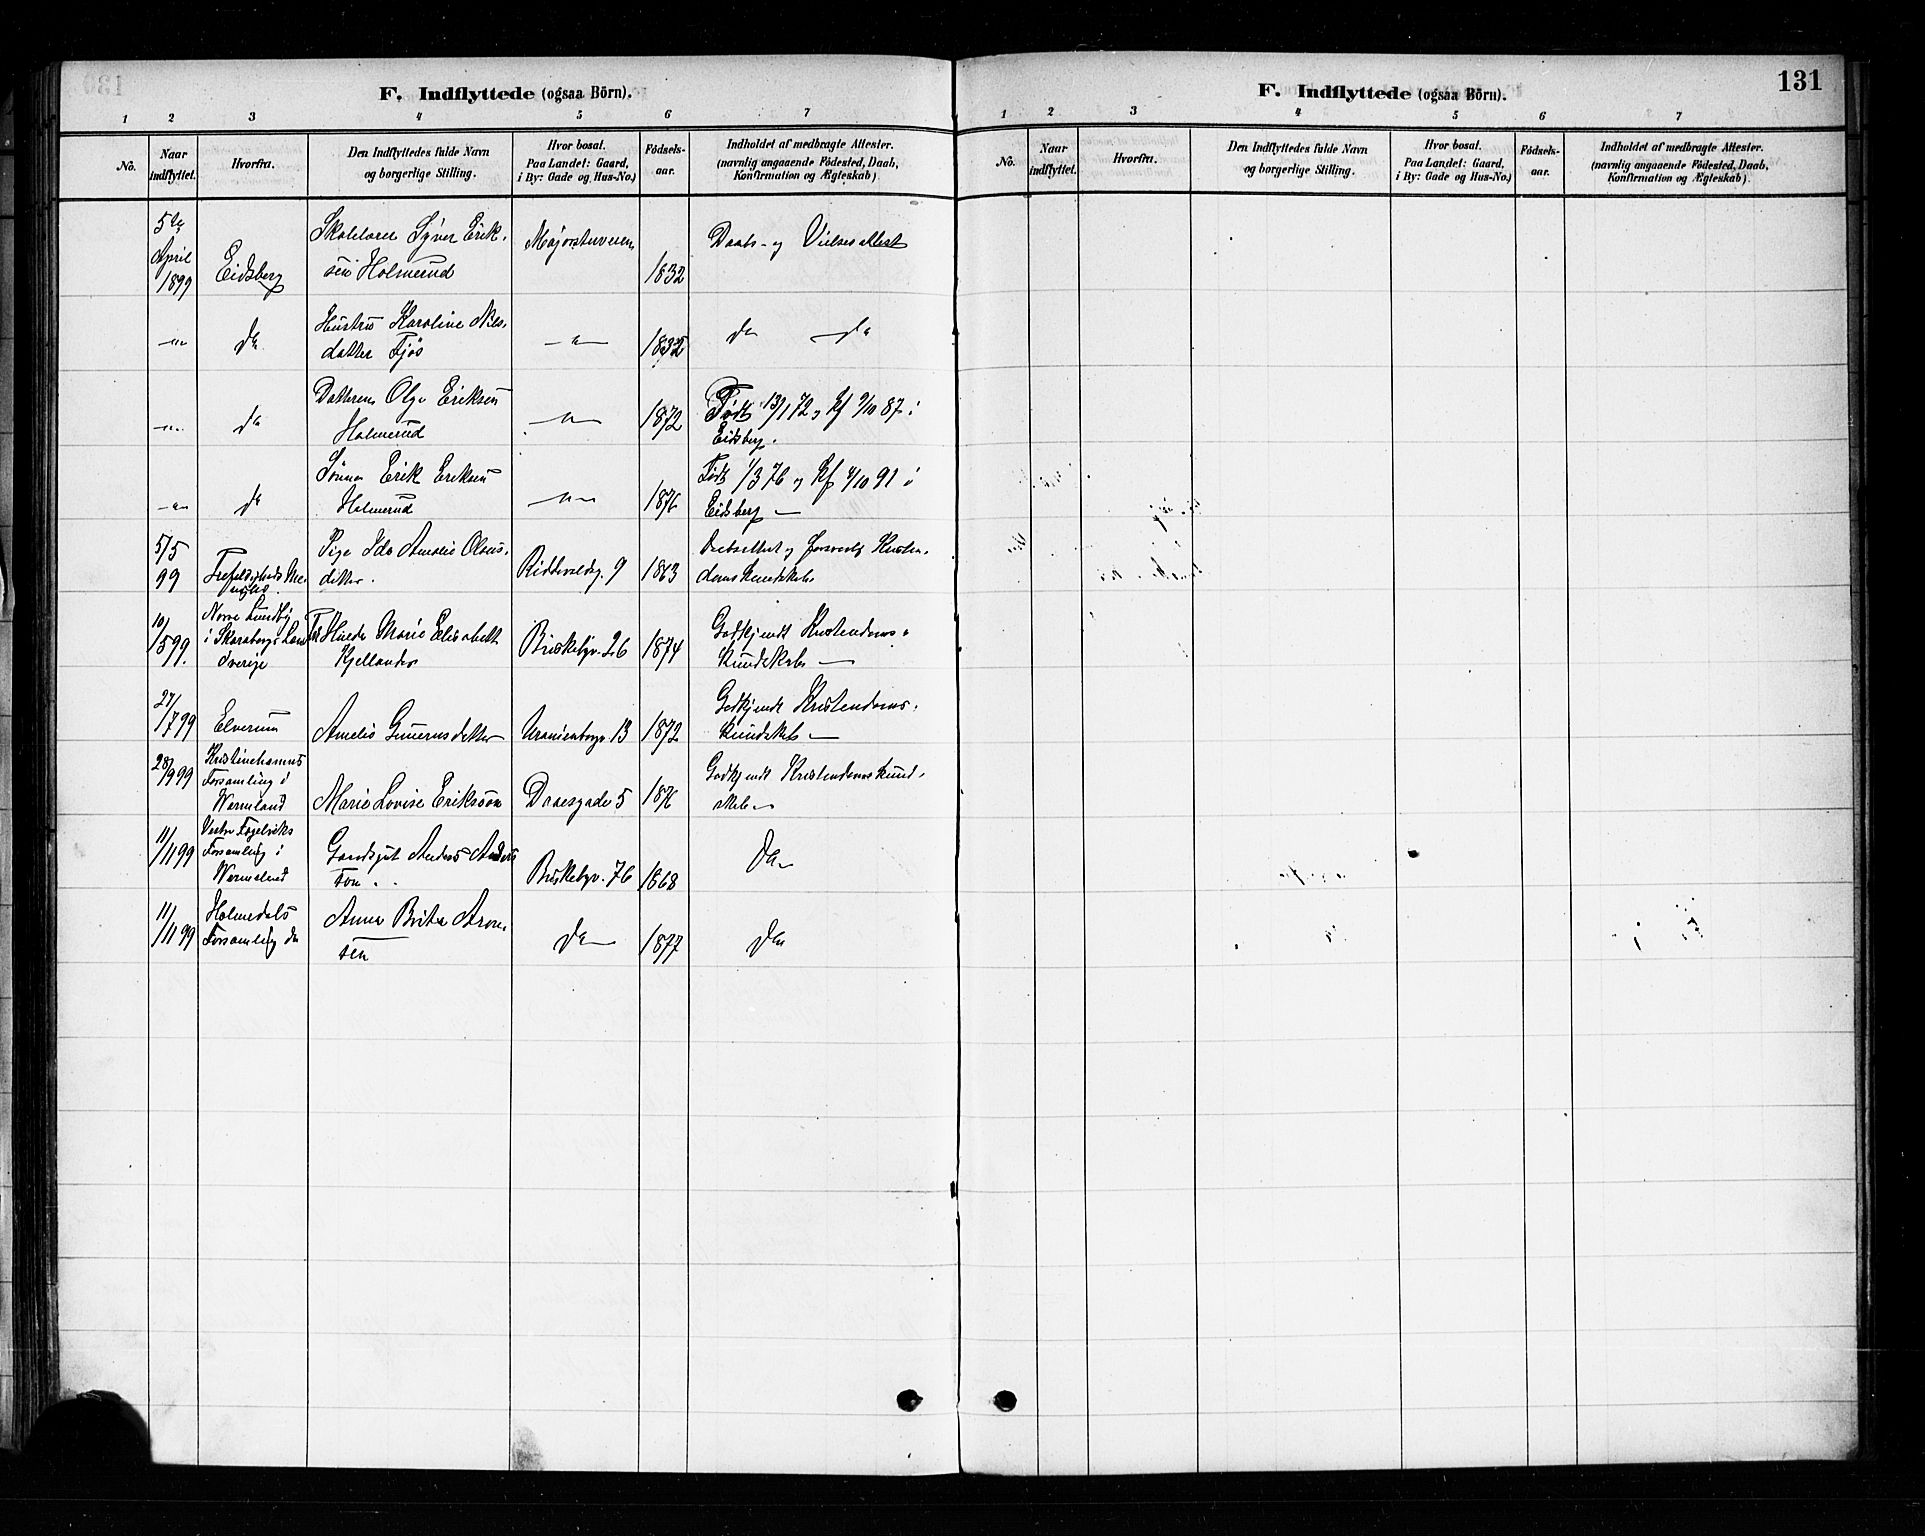 F. Indflyttede (ogsaa Börn).
1 2 3 4 5 6 7
No.
Naar
indflyttet.
Hvorfra.
Den Indflyttedes fulde Navn
og borgerlige Stilling.
Hvor bosat.
Paa Landet: Gaard,
i By: Gade og Hus-No.)
Födsels-
aar.
Indholdet af medbragte Attester.
(navnlig angaaende Födested, Daab,
Konfirmation og Ægteskab)
5te
April
1899
Eidsberg
Skolelærer Syver Erik-
sen Holmerud
Majorstuveien
1832
Daabs- og Vielsesattest
—"—
do
Hustru Karoline Nils-
datter Fjøs
—"—
1832
do do
—"—
do
Datteren Olga Eriksen
Holmerud
—"—
1872
Født 13/1 72 og Kf 9/10 87 i
Eidsberg.
—"—
do
Sønnen Erik Eriksen
Holmerud
—"—
1876
Født 1/3 76 og Kf 4/10 91 i
Eidsberg —
5/5
99
Trefoldigheds Me-
nighed.
Pige Ida Amalie Olaus-
datter.
Riddervoldsg. 9
1863
Daabsattest og forsvarlig Kristen-
domskundskab
10/599.
Norra Lundby
i Skaraborgs Län
Sverige
Hulda Maria Elisabeth
Kjellander
Briskebyv. 26
1874
Godkjendt Kristendoms-
kundskab —
27/799
Elverum
Amelia Gunersdatter
Uranienborgv. 13
1872
Godkjendt Kristendoms-
kundskab —
28/999
Kristinehamns
Forsamling i
Wermland
Marie Lovise Eriksson
Daasgade 5
1876
Godkjendt Kristendomskund-
skab —
11/1199
Vestra Fogelviks
Forsamling i
Wermland
Gaardsgut Anders Anders
son
Briskebyv. 76
1868
Do
11/1199
Holmedals
Forsamling do
Anna Brita Aron-
sen
do
1877
do
131
F. Indflyttede (ogsaa Börn).
1 2 3 4 5 6 7
No.
Naar
indflyttet.
Hvorfra.
Den Indflyttedes fulde Navn
og borgerlige Stilling.
Hvor bosat.
Paa Landet: Gaard,
i By: Gade og Hus-No.)
Födsels-
aar.
Indholdet af medbragte Attester.
(navnlig angaaende Födested, Daab,
Konfirmation og Ægteskab)